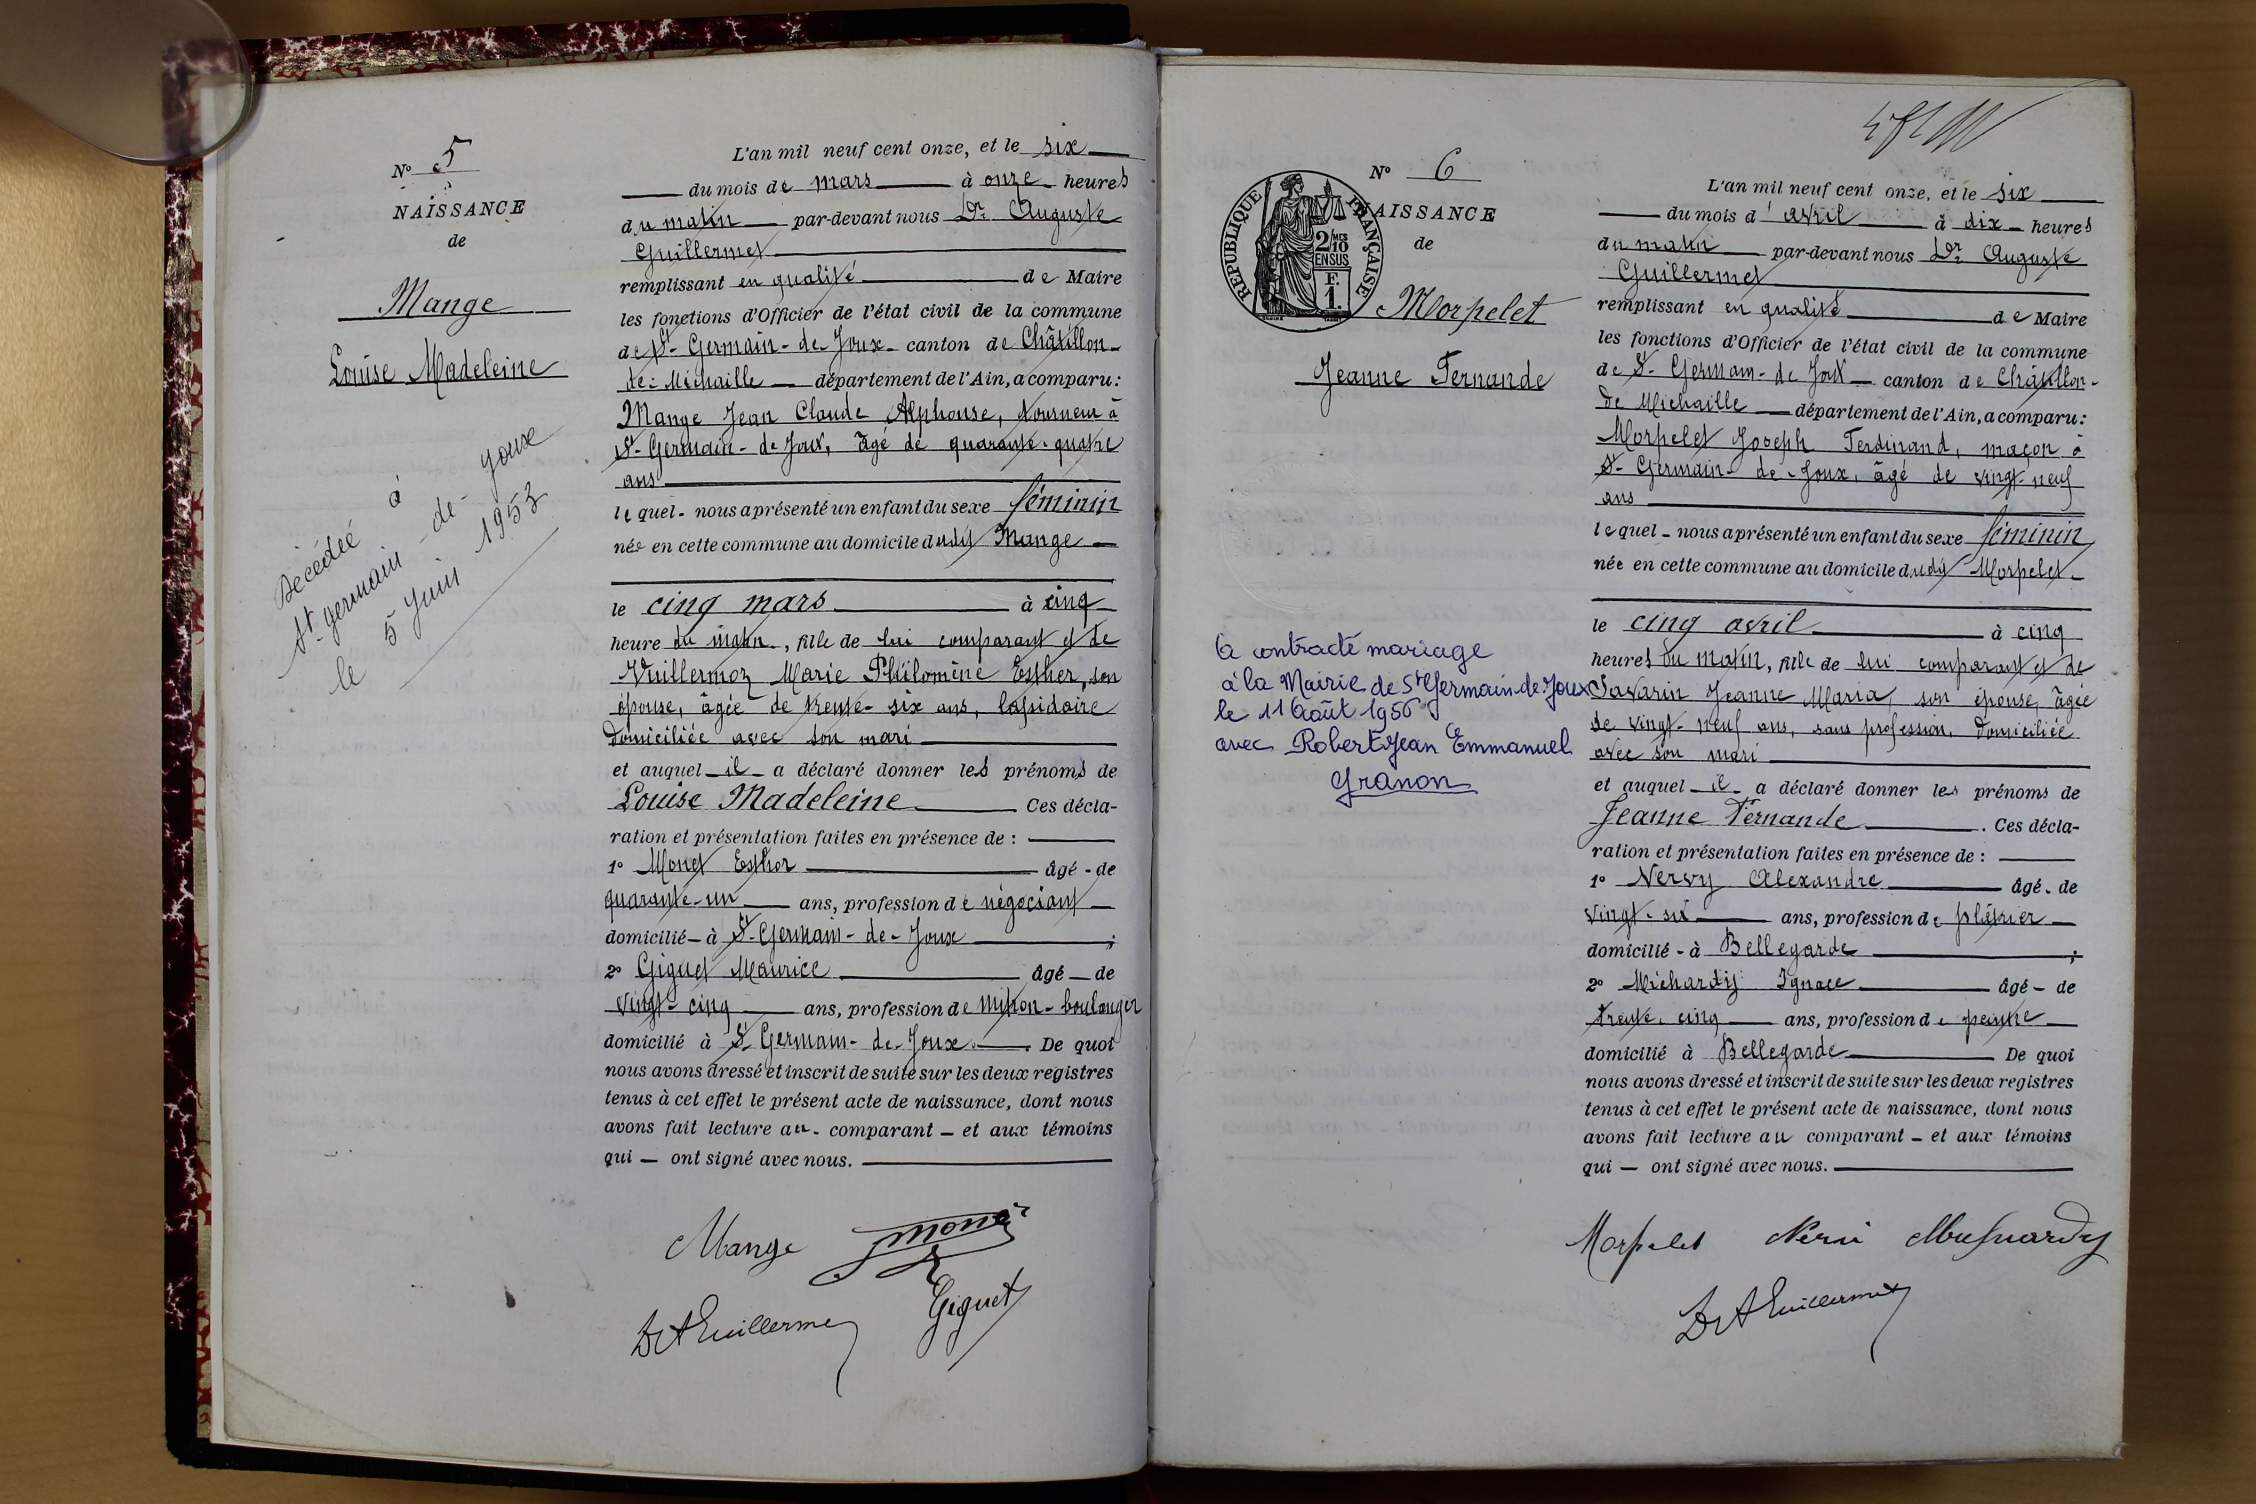 N° 5
NAISSANCE
de
Mange
Louise Madeleine
Décédée à
St germain - de - joux
le 5 Juin 1953
L'an mil neuf cent onze, et le six
du mois de mars à onze heures
du matin par-devant nous Dr. Auguste
Guillermet
remplissant en qualité de Maire
les fonctions d'Officier de l'état civil de la commune
de St-Germain-de-Joux canton de Châtillon-
de-Michaille département de l'Ain, a comparu:
Mange Jean Claude Alphonse, tourneur à
St-Germain-de-Joux, âgé de quarante-quatre
ans
lequel - nous a présenté un enfant du sexe féminin
née en cette commune au domicile dudit Mange
le cinq mars à cinq
heure du matin, fille de lui comparant et de
Vuillermoz Marie Philomène Esther, son
épouse, âgée de trente-six ans, lapidaire
domiciliée avec son mari
et auquel il a déclaré donner les prénoms de
Louise Madeleine Ces décla-
ration et présentation faites en présence de :
1° Monet Esther âgé - de
quarante-un ans, profession de négociant
domicilié - à St-Germain-de-Joux ;
2° Giguet Maurice âgé - de
vingt-cinq ans, profession de mitron-boulanger
domicilié à St Germain-de-Joux. De quoi
nous avons dressé et inscrit de suite sur les deux registres
tenus à cet effet le présent acte de naissance, dont nous
avons fait lecture au - comparant - et aux témoins
qui - ont signé avec nous.
Mange
Dr A Guillermet Giguet
N° 6
RÉPUBLIQUE FRANÇAISE
2/10 MES
EN SUS
F.
1.
NAISSANCE
de
Morpelet
Jeanne Fernande
a contracté mariage
à la Mairie de St Germain-de-Joux
le 11 Août 1956
avec Robert Jean Emmanuel
Granon
L'an mil neuf cent onze, et le six
du mois d'avril à dix heures
du matin par-devant nous Dr Auguste
Guillermet
remplissant en qualité de Maire
les fonctions d'Officier de l'état civil de la commune
de St-Germain-de Joux canton de Châtillon-
de Michaille département de l'Ain, a comparu:
Morpelet Joseph Ferdinand, maçon à
St-Germain-de-Joux, âgé de vingt-neuf
ans
lequel - nous a présenté un enfant du sexe féminin
née en cette commune au domicile dudit Morpelet
le cinq avril à cinq
heures du matin, fille de lui comparant et de
Savarin Jeanne Maria, son épouse, âgée
de vingt-neuf ans, sans profession, domiciliée
avec son mari
et auquel il a déclaré donner les prénoms de
Jeanne Fernande. Ces décla-
ration et présentation faites en présence de :
1° Nervy Alexandre âgé - de
vingt-six ans, profession de plâtrier
domicilié - à Bellegarde ;
2° Michardy Ignace âgé - de
trente-cinq ans, profession de peintre
domicilié à Bellegarde De quoi
nous avons dressé et inscrit de suite sur les deux registres
tenus à cet effet le présent acte de naissance, dont nous
avons fait lecture au comparant - et aux témoins
qui - ont signé avec nous.
Morpelet
Dr A Guillermet